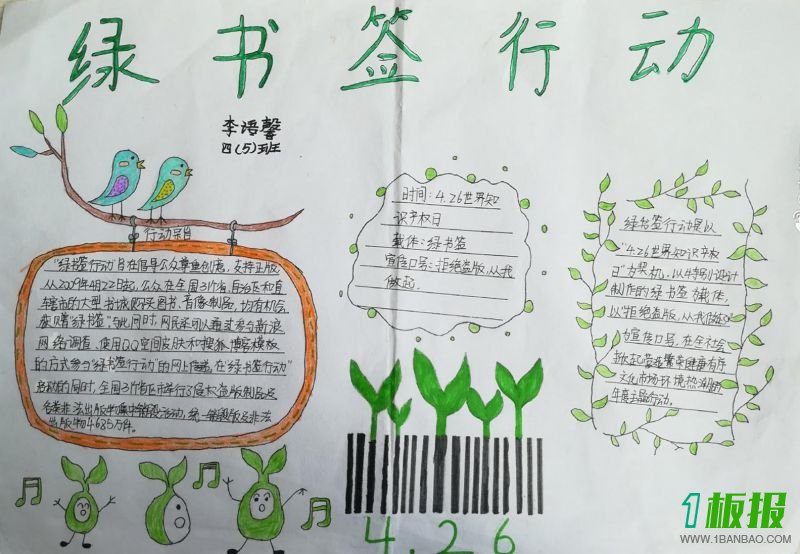 绿书签行动
李语馨
四(5)班
行动平台
"绿书签行动"旨在倡导公众尊重创意,支持正版
从2009年4月22日起,公众在全国31个省、自治区和直
辖市的大型书城购买图书、音像制品,均有机会
获赠"绿书签"。与此同时,网民还可以通过参与新浪
网络调查、使用QQ空间皮肤和搜狐博客模板
的方式参与"绿书签行动"的网上传递,在"绿书签行动"
启动的同时,全国31个省区市举行了侵权盗版制品及
各类非法出版物集中销毁活动,统一销毁版及非法
出版物4685万件。
时间:4.26世界知
识产权日
载体:绿书签
宣传口号:拒绝盗版,从我
做起。
绿书签行动是以
"4.26世界知识产权
日"为契机,以特别设计
制作的绿书签为载体,
以"拒绝盗版,从我做起"
为宣传口号,在全社会
掀起营造繁荣健康有序
文化市场环境热潮的
年度主题行动。
4.26
1板报
WWW.1BANBAO.COM